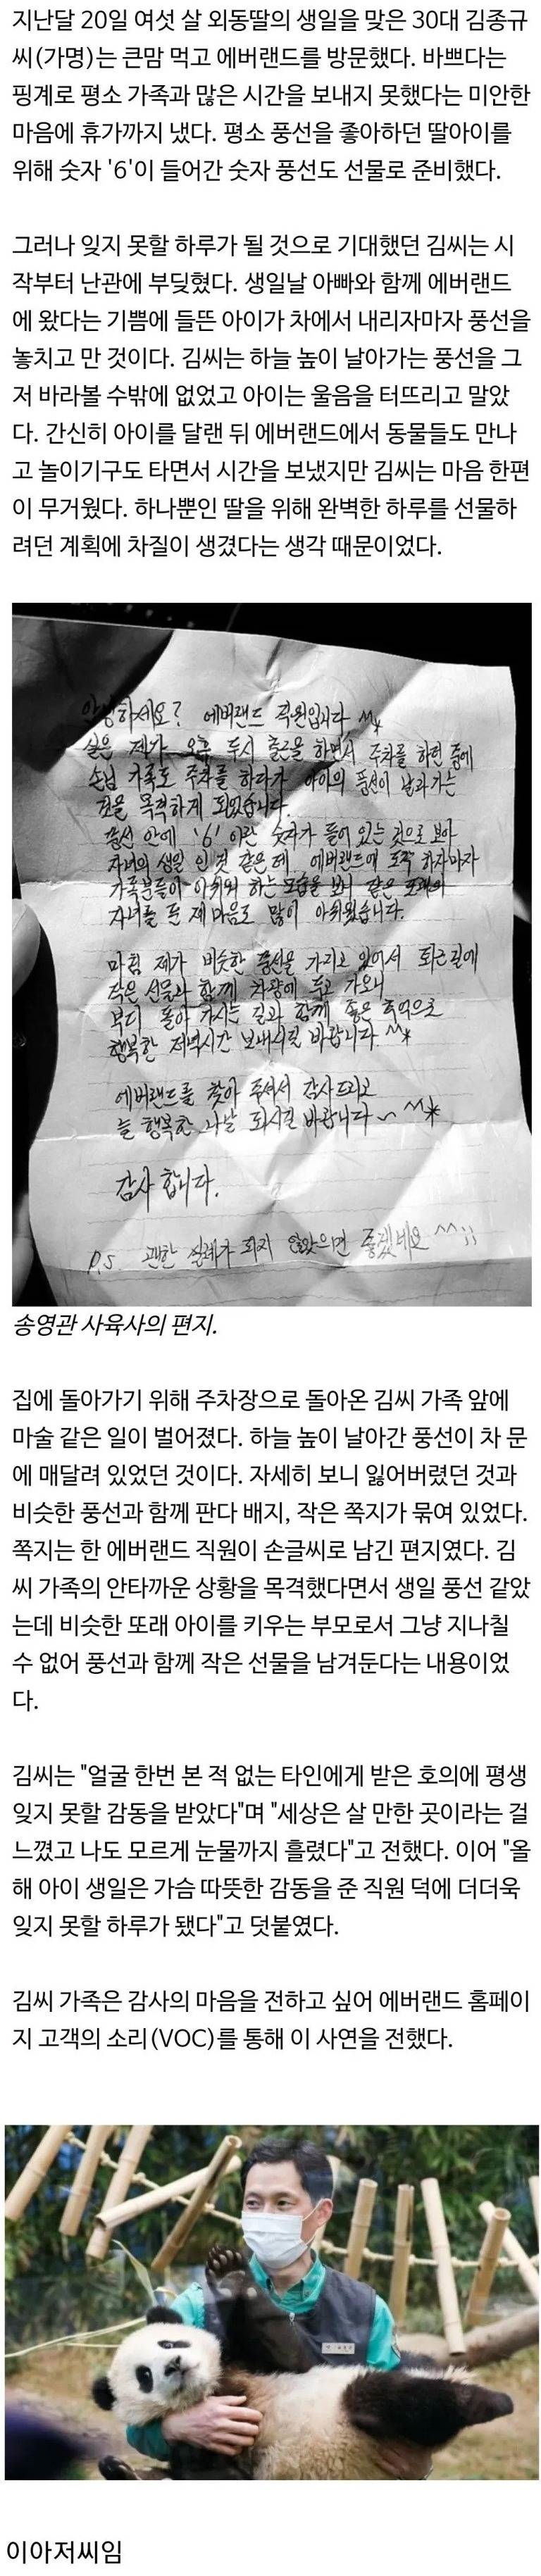 지난달 20일 여섯 살 외동딸의 생일을 맞은 30대 김종규
씨(가명)는 큰맘 먹고 에버랜드를 방문했다. 바쁘다는
핑계로 평소 가족과 많은 시간을 보내지 못했다는 미안한
마음에 휴가까지 냈다. 평소 풍선을 좋아하던 딸아이를
위해 숫자 '6'이 들어간 숫자 풍선도 선물로 준비했다.
그러나 잊지 못할 하루가 될 것으로 기대했던 김씨는 시
작부터 난관에 부딪혔다. 생일날 아빠와 함께 에버랜드
에 왔다는 기쁨에 들뜬 아이가 차에서 내리자마자 풍선을
놓치고 만 것이다. 김씨는 하늘 높이 날아가는 풍선을 그
저 바라볼 수밖에 없었고 아이는 울음을 터뜨리고 말았
다. 간신히 아이를 달랜 뒤 에버랜드에서 동물들도 만나
고 놀이기구도 타면서 시간을 보냈지만 김씨는 마음 한편
이 무거웠다. 하나뿐인 딸을 위해 완벽한 하루를 선물하
려던 계획에 차질이 생겼다는 생각 때문이었다.
안녕하세요? 에버랜드 직원입니다 ^^*
실은 제가 오후 두시 출근을 하면서 주차를 하던 중에
손님 가족도 주차를 하다가 아이의 풍선이 날라가는
것을 목격하게 되었습니다.
풍선 안에 '6' 이란 숫자가 들어 있는 것으로 보아
자녀의 생일 인 것 같은데 에버랜드에 도착 하자마자
가족분들이 아쉬워 하는 모습을 보니 같은 또래의
자녀를 둔 제 마음도 많이 아쉬웠습니다.
마침 제가 비슷한 풍선을 가지고 있어서 퇴근길에
작은 선물과 함께 차량에 두고 가오니
부디 돌아 가시는 길과 함께 좋은 추억으로
행복한 저녁시간 보내시길 바랍니다. ^^*
에버랜드를 찾아 주셔서 감사드리고
늘 행복한 나날 되시길 바랍니다~ ^^*
감사 합니다.
P.S. 괜한 실례가 되지 않았으면 좋겠네요 ^^;;
송영관 사육사의 편지.
집에 돌아가기 위해 주차장으로 돌아온 김씨 가족 앞에
마술 같은 일이 벌어졌다. 하늘 높이 날아간 풍선이 차 문
에 매달려 있었던 것이다. 자세히 보니 잃어버렸던 것과
비슷한 풍선과 함께 판다 배지, 작은 쪽지가 묶여 있었다.
쪽지는 한 에버랜드 직원이 손글씨로 남긴 편지였다. 김
씨 가족의 안타까운 상황을 목격했다면서 생일 풍선 같았
는데 비슷한 또래 아이를 키우는 부모로서 그냥 지나칠
수 없어 풍선과 함께 작은 선물을 남겨둔다는 내용이었
다.
김씨는 "얼굴 한번 본 적 없는 타인에게 받은 호의에 평생
잊지 못할 감동을 받았다"며 "세상은 살 만한 곳이라는 걸
느꼈고 나도 모르게 눈물까지 흘렸다"고 전했다. 이어 "올
해 아이 생일은 가슴 따뜻한 감동을 준 직원 덕에 더더욱
잊지 못할 하루가 됐다"고 덧붙였다.
김씨 가족은 감사의 마음을 전하고 싶어 에버랜드 홈페이
지 고객의 소리(VOC)를 통해 이 사연을 전했다.
이아저씨임